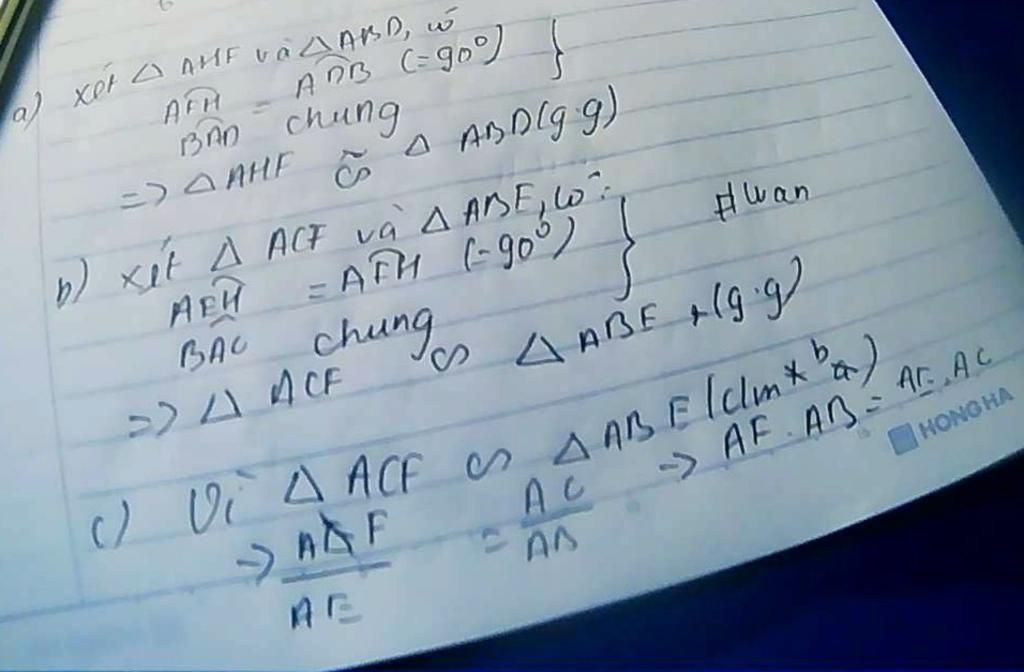 a) Xét △ AHF và △ ABD, có
AFH = ADB (=90°) }
BAD chung
=> △ AHF ∽ △ ABD (g.g)
b) xét △ ACF và △ ABE, có:
AEH = AFH (=90°) }
BAC chung
#Wan
=> △ ACF ∽ △ ABE (g.g)
c) Vì △ ACF ∽ △ ABE (clm* b)
-> AF / AE = AC / AB -> AF . AB = AE . AC
HONG HA